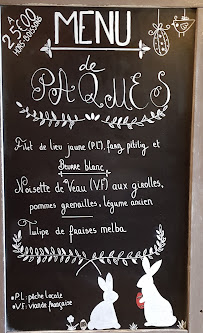 A 25€00
HORS-BOISSONS
MENU
de
PAQUES
Filet de lieu jaune (P.L), fang pitilig et
Beurre blanc
Noisette de Veau (V.F) aux girolles,
pommes grenailles, légume ancien
Tulipe de fraises melba
• P.L : pêche locale
• V.F : viande française